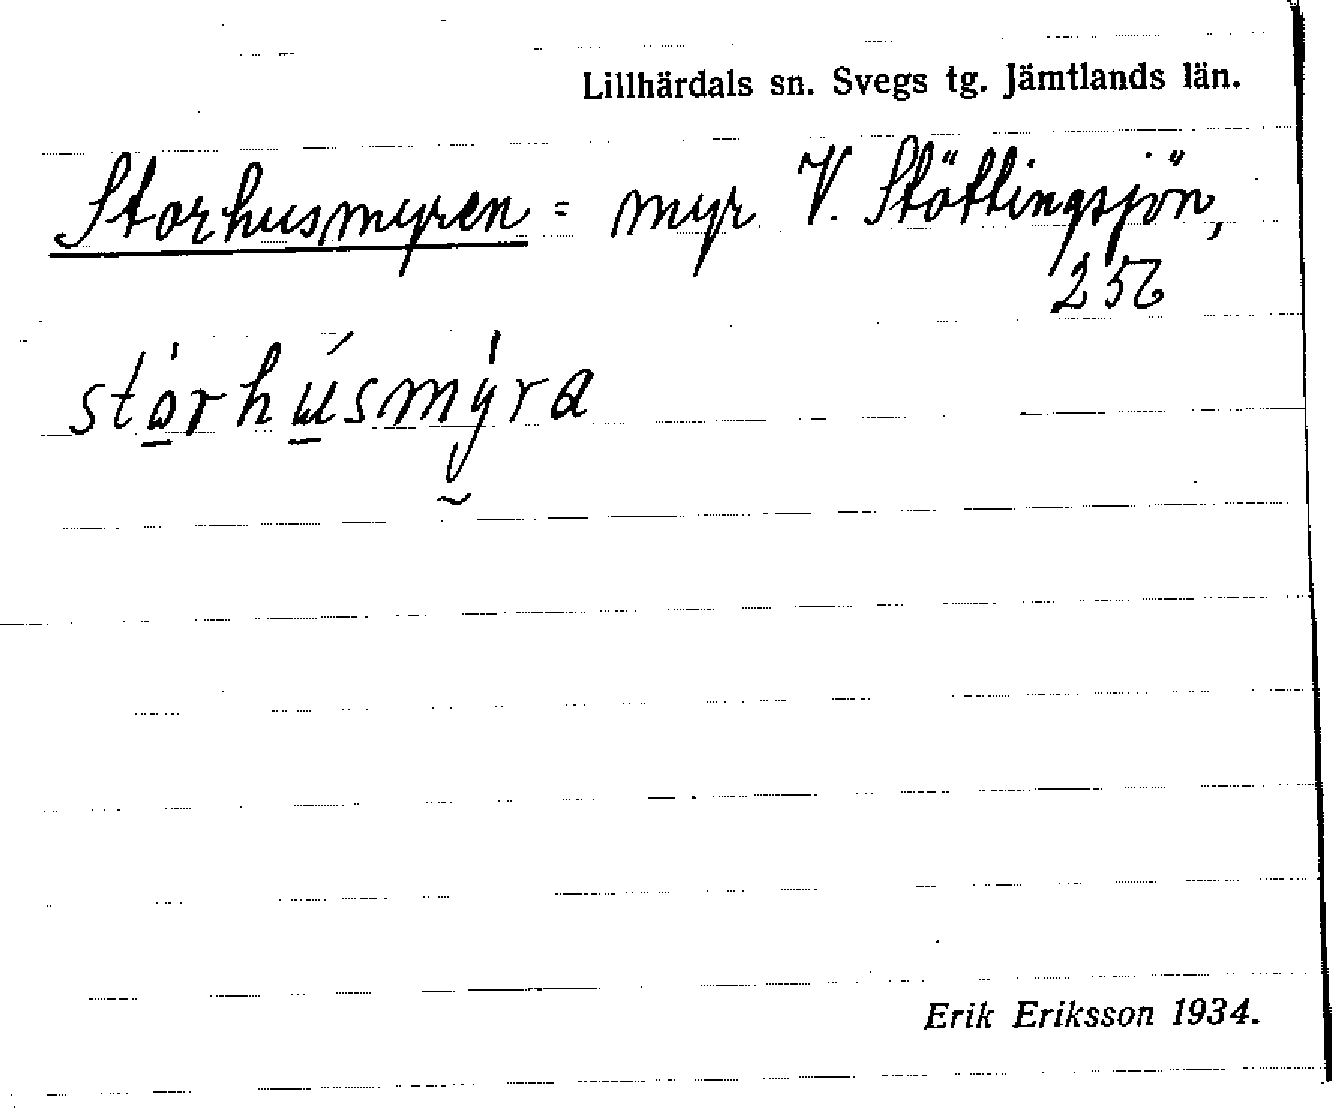 Lillhärdals sn. Svegs tg. Jämtlands län.
Storhusmyren = myr V. Stöttingsjön,
256
stòrhúsmỳra
Erik Eriksson 1934.